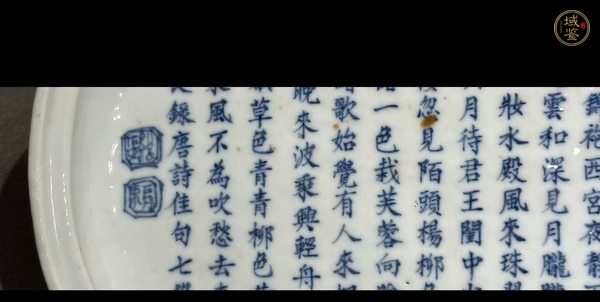 西宮夜靜
雲和深見月朧
妝水殿風來珠
月待君王閨中
忽見陌頭楊柳
一色栽芙蓉向
歌始覺有人來
晚來波乘興輕舟
草色青青柳色
風不為吹愁去
錄唐詩佳句七
域鑒